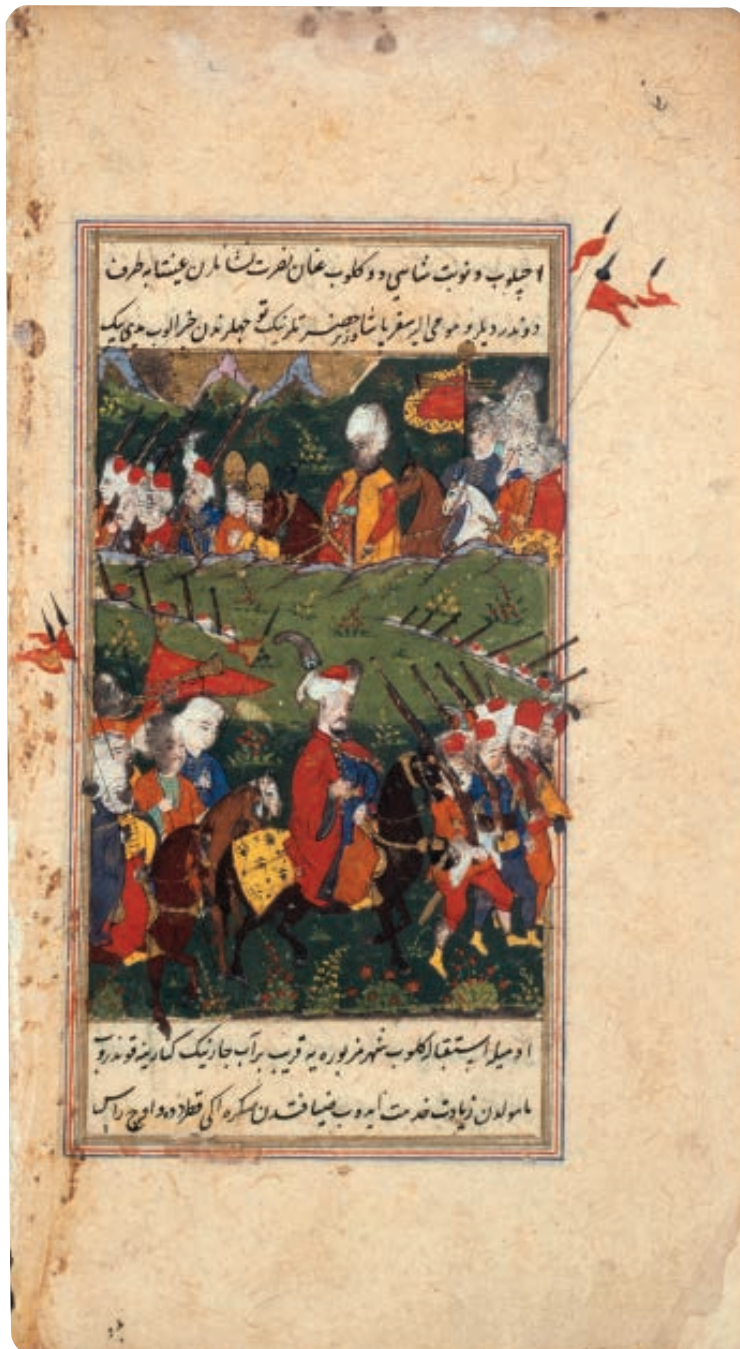 اچیلوب و نوبت شاهی دوکلوب عنان نصرت نشانلرن عینتابه طرف
دوندردیلر و مومی الیه سفر پاشا وزیر حضرتلرینک توجهلرندن خبر الوب یدی بیک
ادمیله استقباله کلوب شهر مزبوره یه قریب بر آب جارینک کنارینه قوندروب
مامولدن زیادت خدمت ایدوب ضیافتدن صکره اکی قطار دوه و اوچ راس